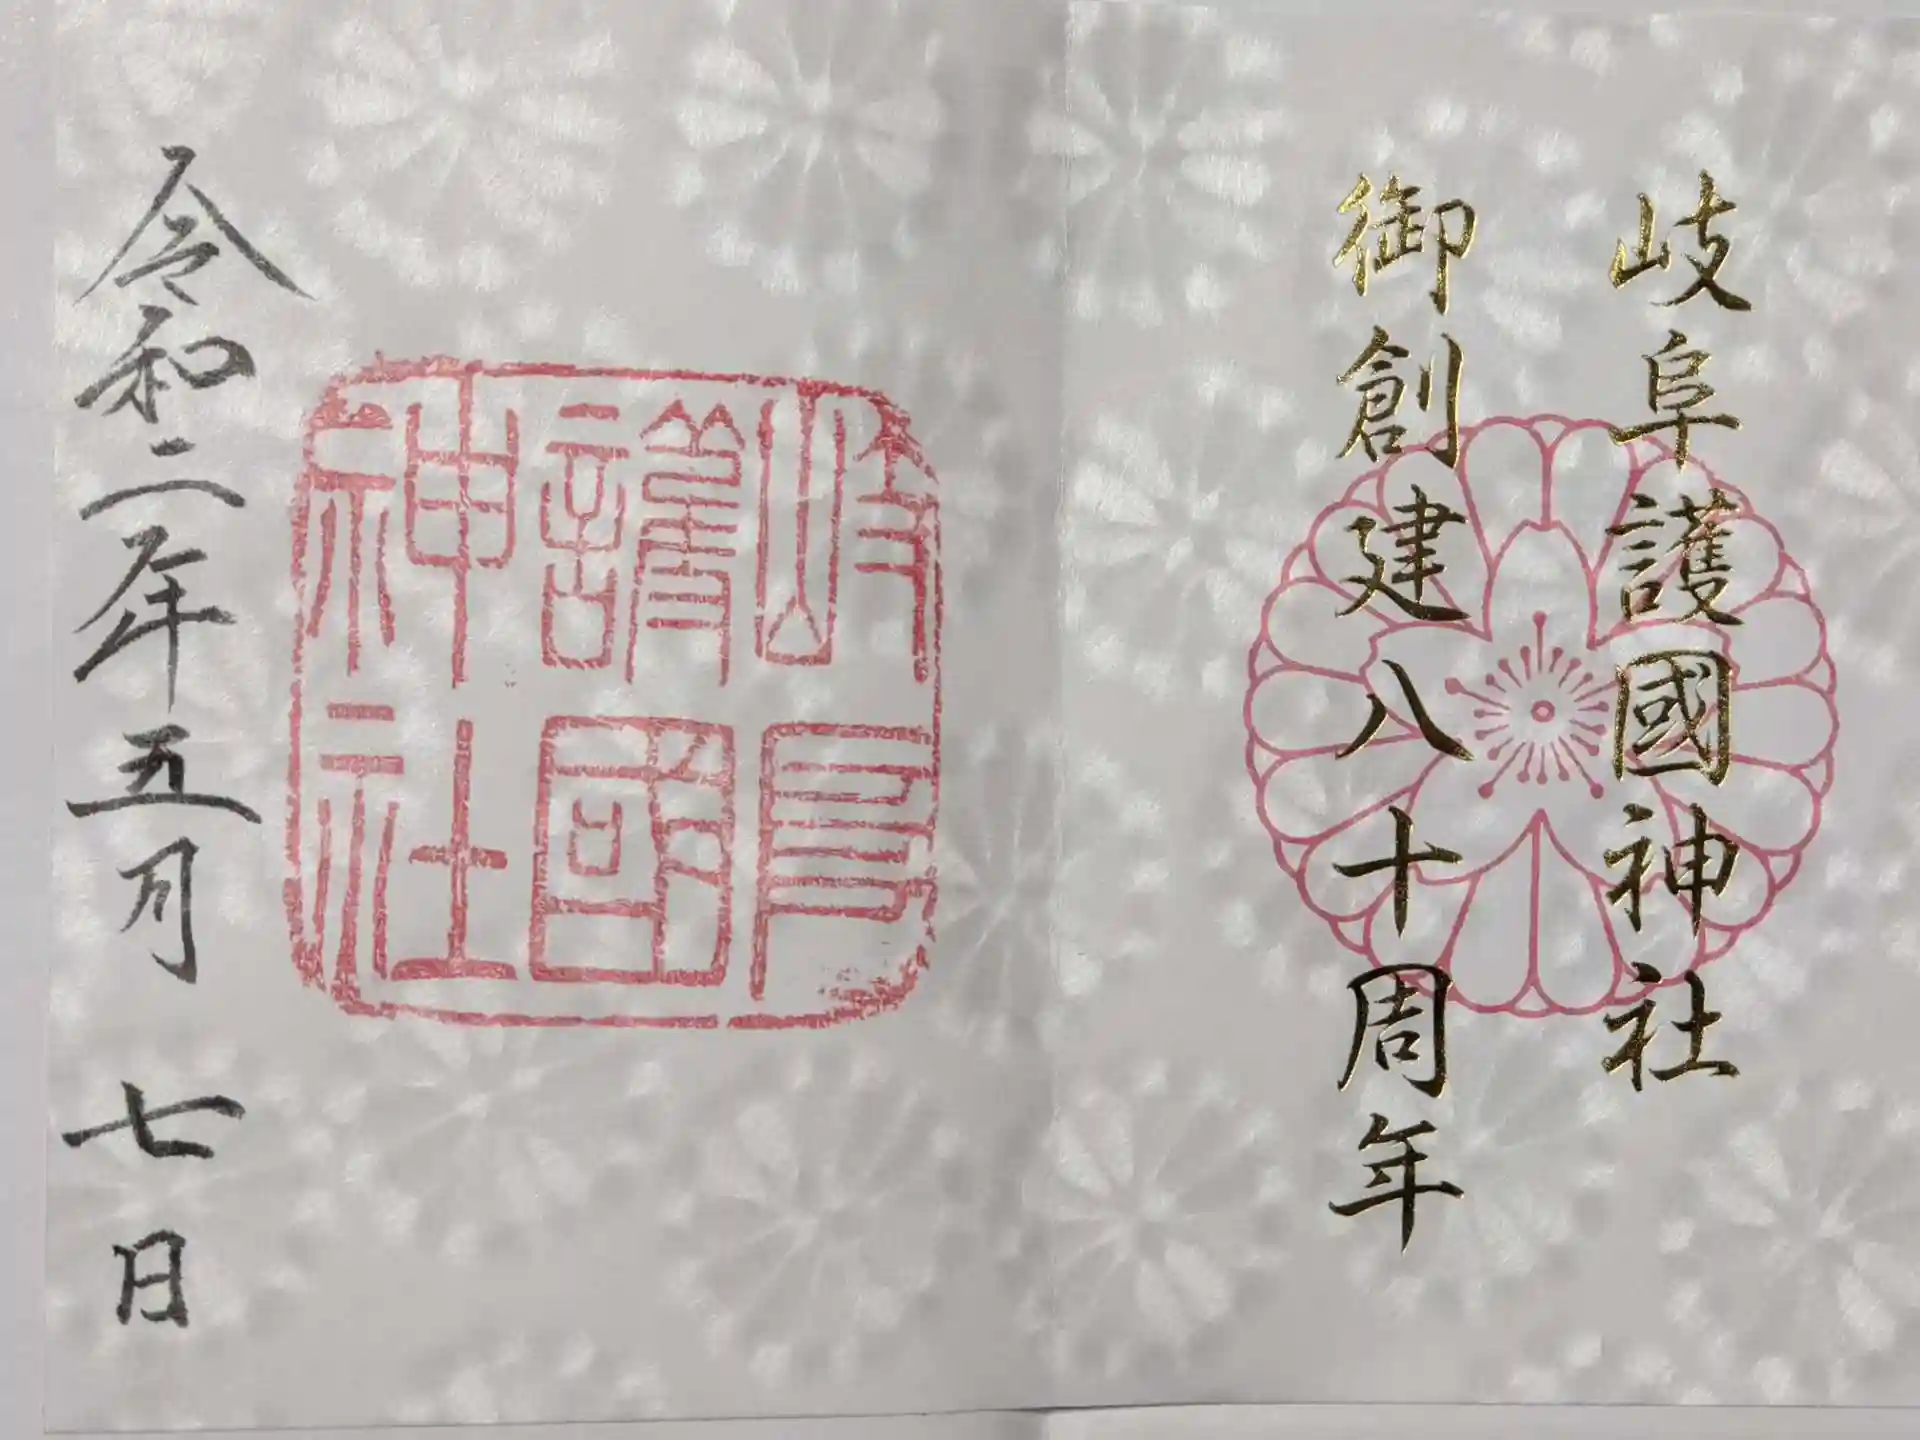 岐阜護國神社
御創建八十周年
岐阜
護國
神社
令和二年五月七日